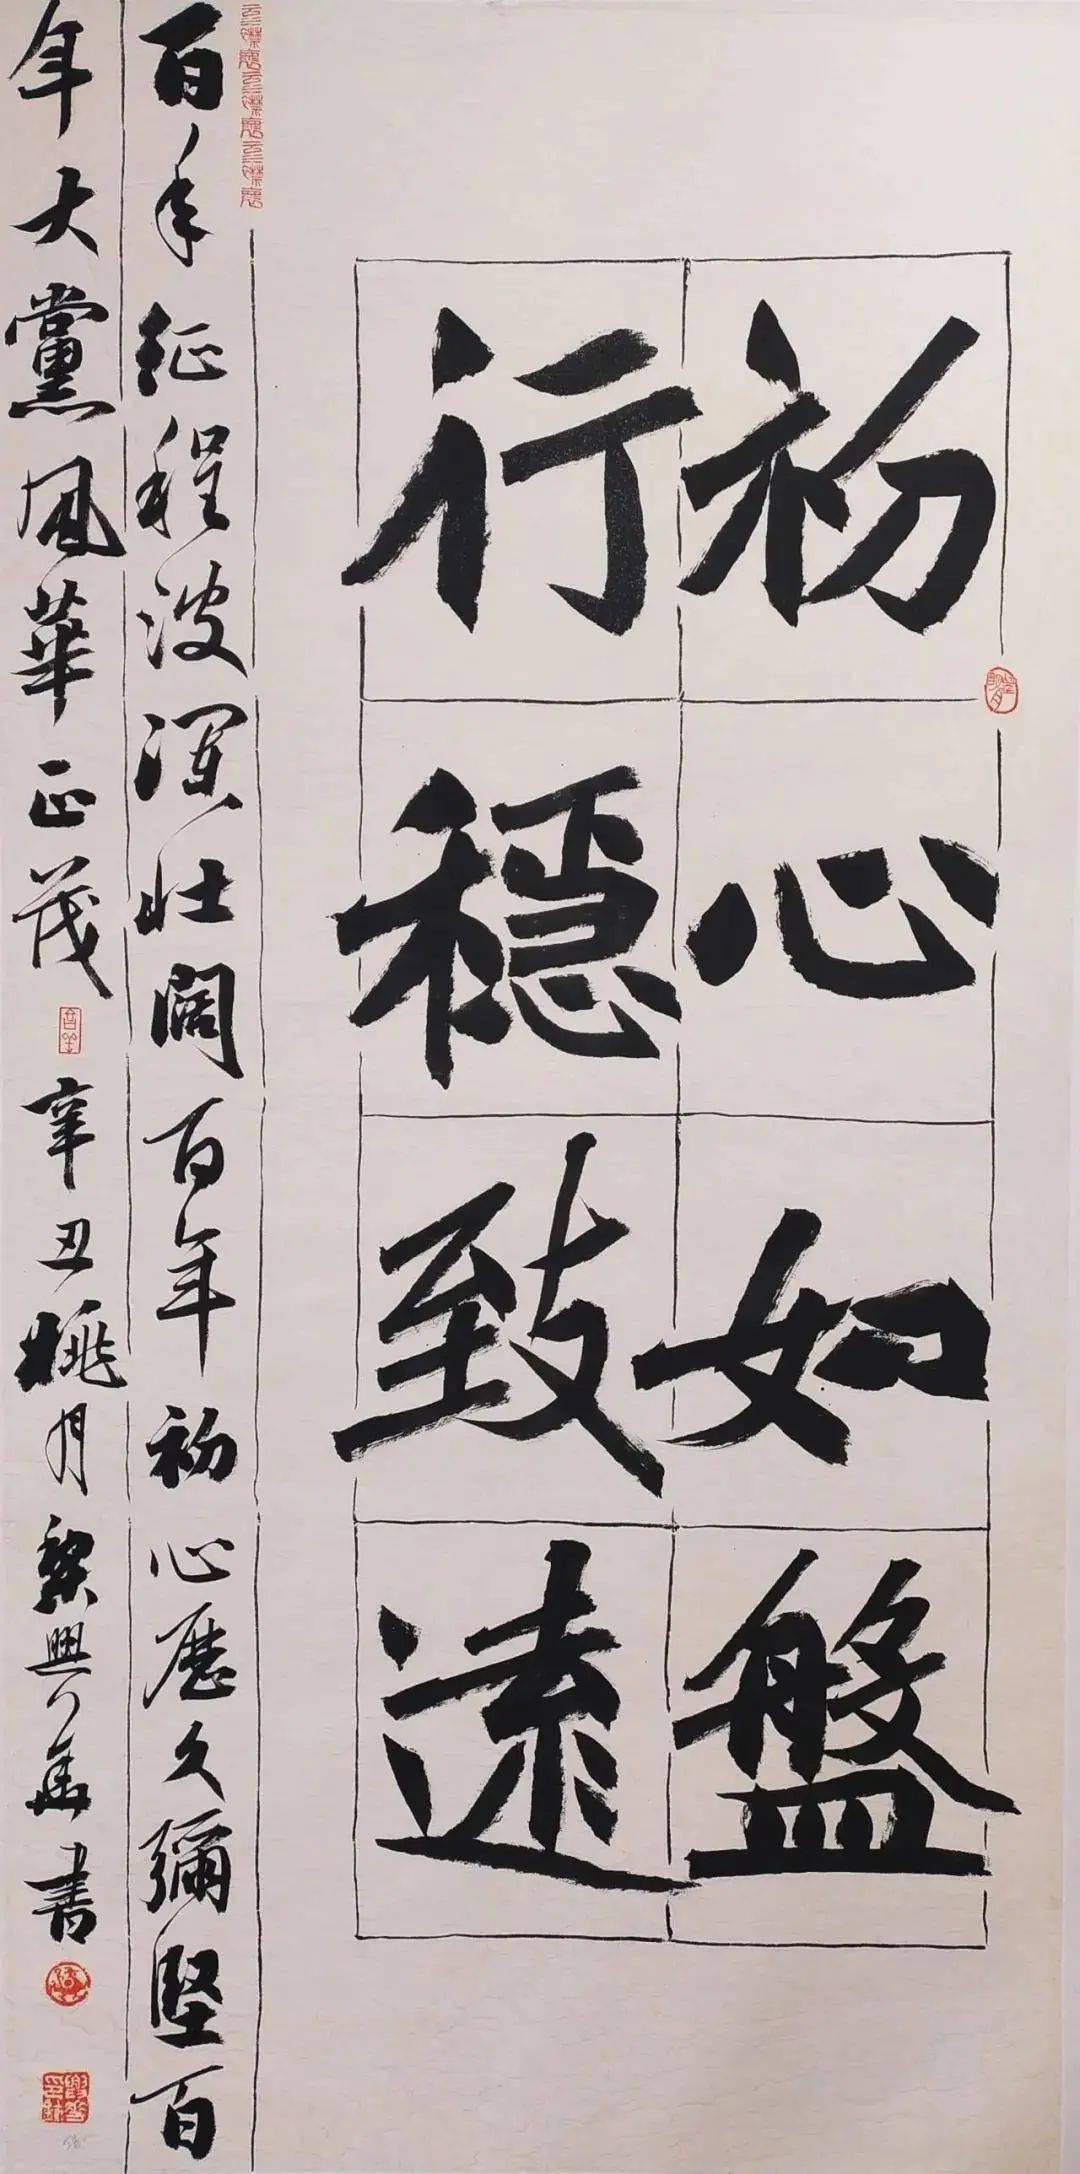 初心如盤
行穩致遠
百年征程波瀾壯闊百年初心歷久彌堅百
年大黨風華正茂
辛丑桃月黎興華書